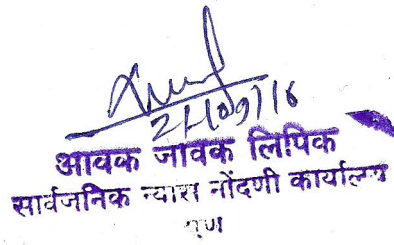 21/09/16
आवक जावक लिपिक
सार्वजनिक न्यास नोंदणी कार्यालय